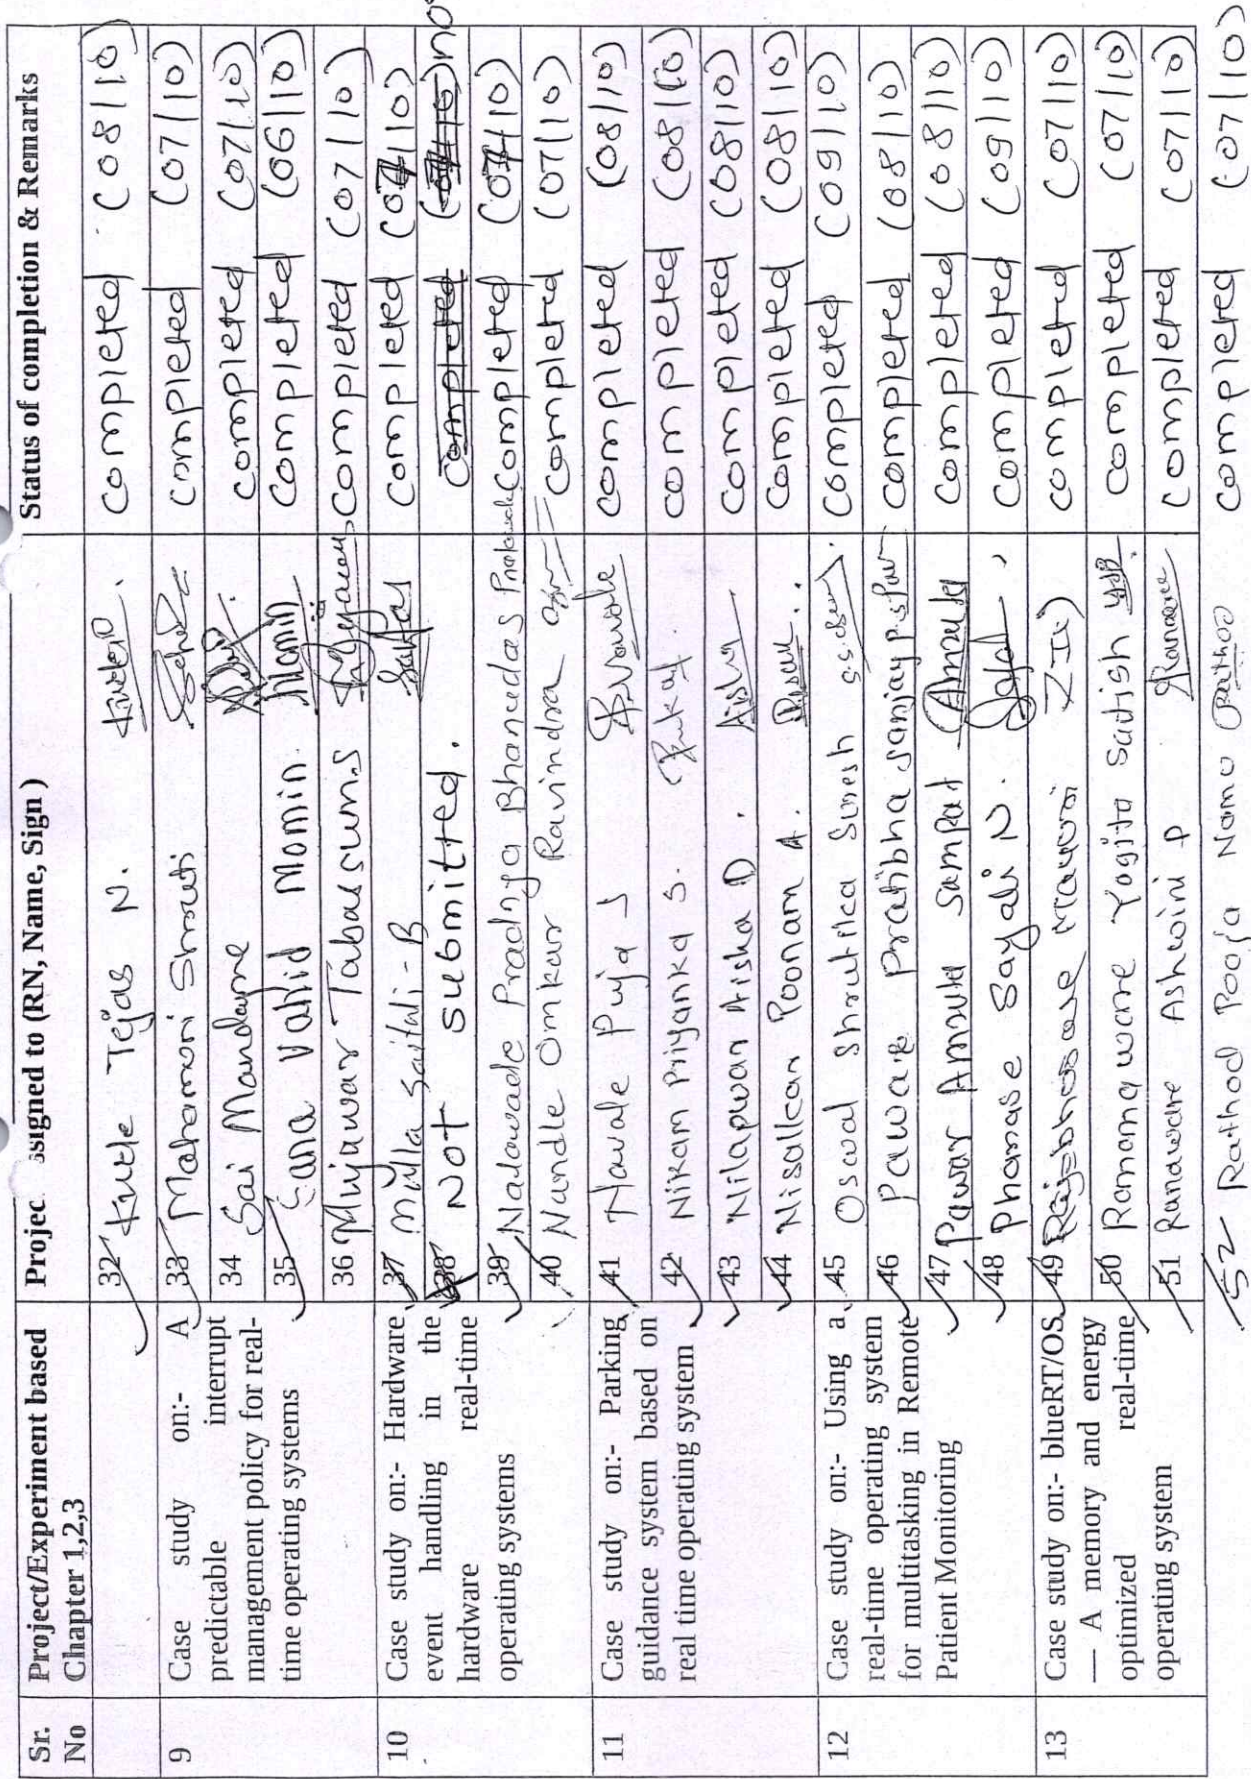 Sr. No Project/Experiment based Chapter 1,2,3 Projec ssigned to (RN, Name, Sign ) Status of completion & Remarks
32 Kutle Tejas N. completed (08/10)
9 Case study on:- A predictable interrupt management policy for real-time operating systems
33 Mahamoni Shruti completed (07/10)
34 Sai Mandayre completed (07/10)
35 Sana Vahid Momin Momin completed (06/10)
36 Mujawar Tabassum S completed (07/10)
10 Case study on:- Hardware event handling in the hardware real-time operating systems
37 Mulla Saitali - B completed (07/10)
38 Not submitted. completed
39 Nalawade Pradnya Bhanudas completed (07/10)
40 Nandle Omkar Ravindra completed (07/10)
11 Case study on:- Parking guidance system based on real time operating system
41 Navale Puja J completed (08/10)
42 Nikam Priyanka S. completed (08/10)
43 Nilapwar Aisha D. Aisha completed (08/10)
44 Nisalkar Poonam A. completed (08/10)
12 Case study on:- Using a real-time operating system for multitasking in Remote Patient Monitoring
45 Oswal Shrutika Suresh completed (09/10)
46 Pawar Pratibha Sanjay completed (08/10)
47 Pawar Amruta Sampat completed (08/10)
48 Phamase Sayali N. completed (09/10)
13 Case study on:- blueRT/OS — A memory and energy optimized real-time operating system
49 completed (07/10)
50 Ramanaware Yogita Satish completed (07/10)
51 Ranaware Ashwini P completed (07/10)
52 Rathod Pooja Namu Rathod completed (07/10)